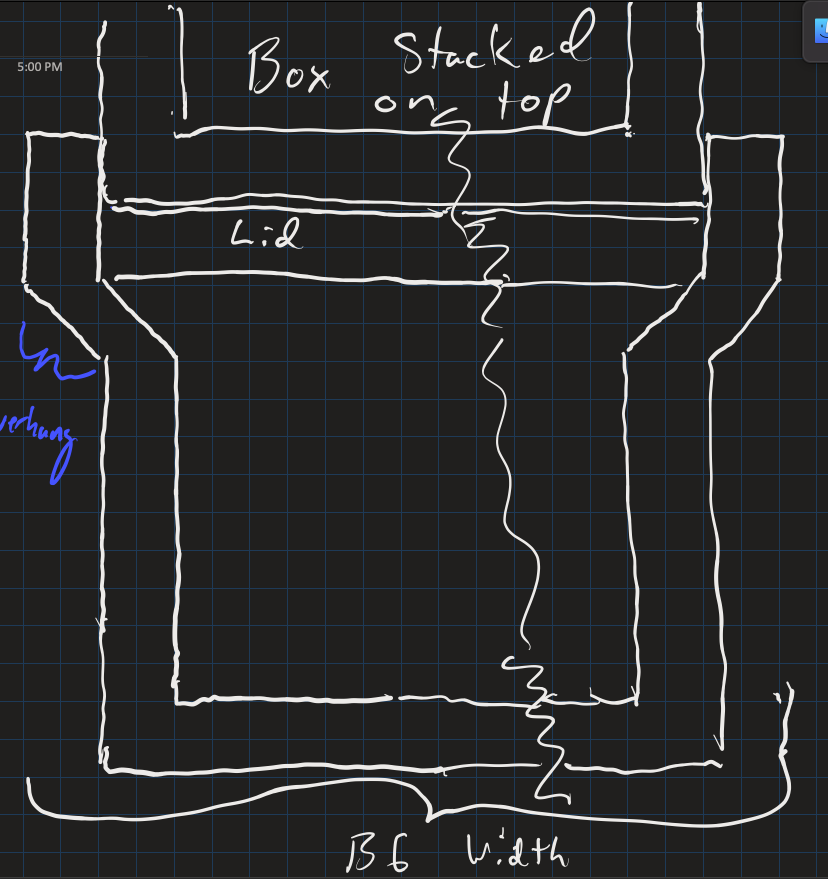 5:00 PM
Box Stacked
on top
Lid
verhang
B6 Width